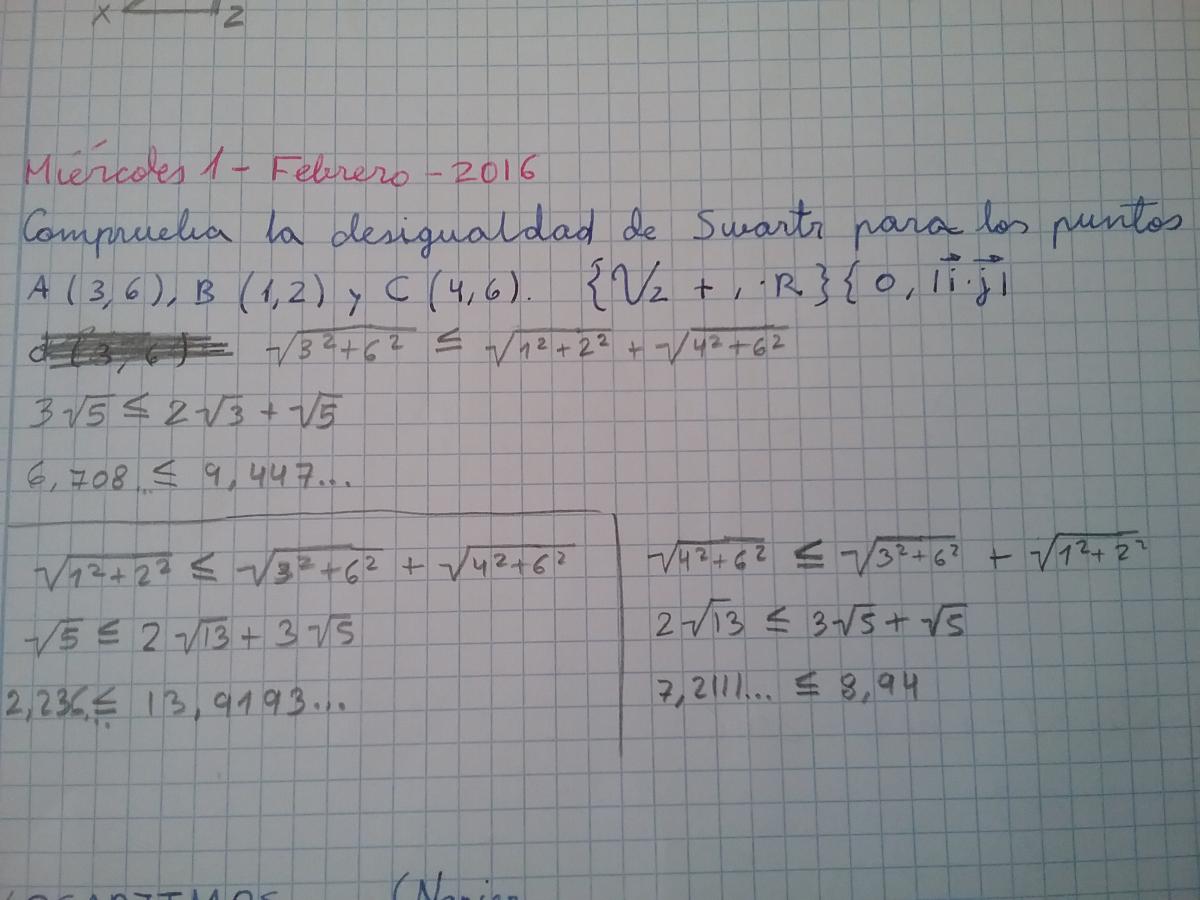 x z
Miércoles 1 - Febrero - 2016
Comprueba la desigualdad de Swartz para los puntos
A (3,6), B (1,2) y C (4,6). {V2 +, ·R}{0, |i·j|
√3²+6² ≤ √1²+2² + √4²+6²
3√5 ≤ 2√3 + √5
6,708... ≤ 9,447...
√1²+2² ≤ √3²+6² + √4²+6²
√5 ≤ 2√13 + 3√5
2,236... ≤ 13,9193...
√4²+6² ≤ √3²+6² + √1²+2²
2√13 ≤ 3√5 + √5
7,2111... ≤ 8,94